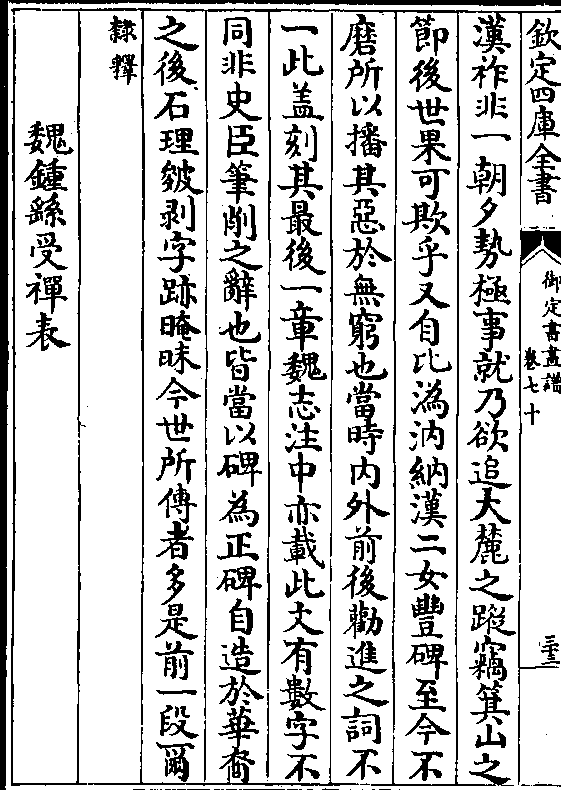 欽定四庫全書
御定書畫譜
卷七十
三十三
漢祚非一朝夕勢極事就乃欲追大麓之蹤竊箕山之
節後世果可欺乎又自比溈汭納漢二女豐碑至今不
磨所以播其惡於無窮也當時内外前後勸進之詞不
一此盖刻其最後一章魏志注中亦載此文有數字不
同非史臣筆削之辭也皆當以碑為正碑自造於華裔
之後石理皴剥字跡晻昧今世所傳者多是前一段爾
隸釋
魏鍾繇受禪表